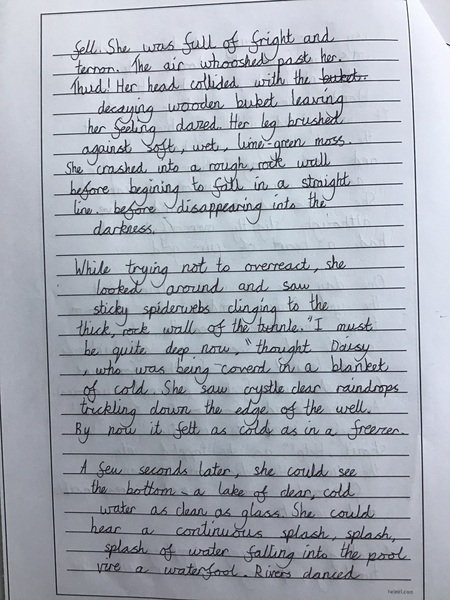 fell. She was full of fright and
terror. The air whooshed past her.
Thud! Her head collided with the buket
decaying wooden buket leaving
her feeling dazed. Her leg brushed
against soft, wet, lime-green moss.
She crashed into a rough, rock wall
before begining to fall in a straight
line before disappearing into the
darkness.
While trying not to overreact, she
looked around and saw
sticky spiderwebs clinging to the
thick, rock wall of the tunnle. "I must
be quite deep now," thought Daisy
, who was being coverd in a blanket
of cold. She saw crystle clear raindrops
trickling down the edge of the well.
By now it felt as cold as in a freezer.
A few seconds later, she could see
the bottom - a lake of clear, cold
water as clean as glass. She could
hear a continuous splash, splash,
splash of water falling into the pool
vire a waterfool. Rivers danced